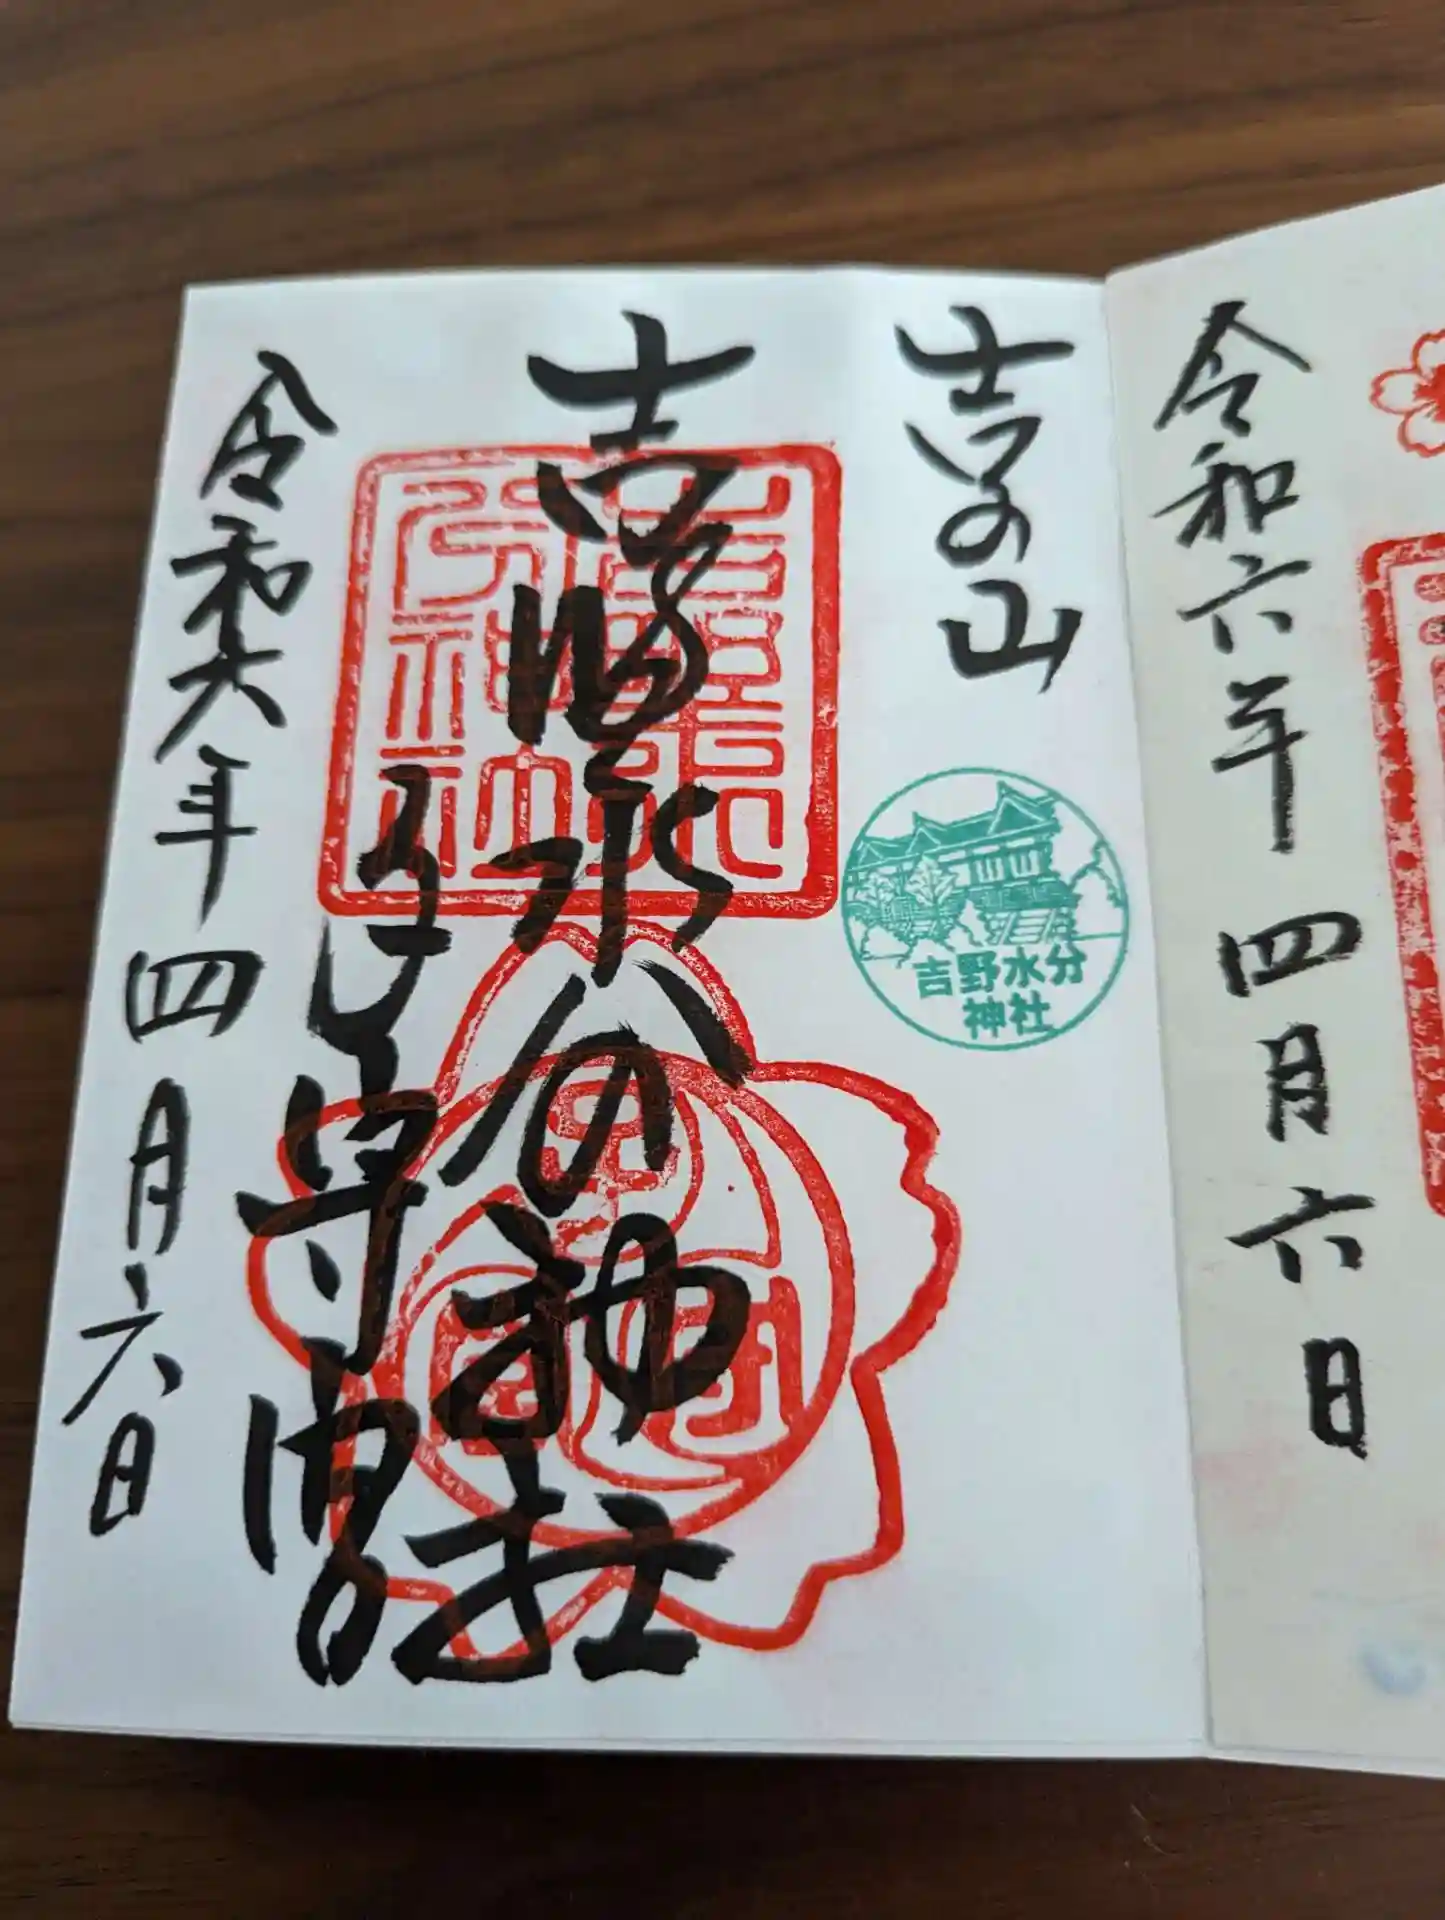 令和六年 四月六日
吉の山
吉野水分
神社
吉野水分神社
子守宮
令和六年四月六日